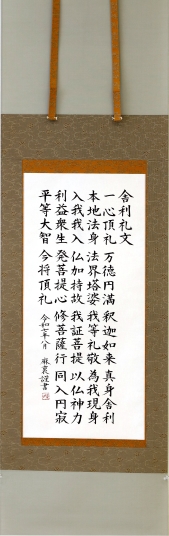 舎利礼文
一心頂礼 万徳円満 釈迦如来 真身舎利
本地法身 法界塔婆 我等礼敬 為我現身
入我我入 仏加持故 我証菩提 以仏神力
利益衆生 発菩提心 修菩薩行 同入円寂
平等大智 今将頂礼